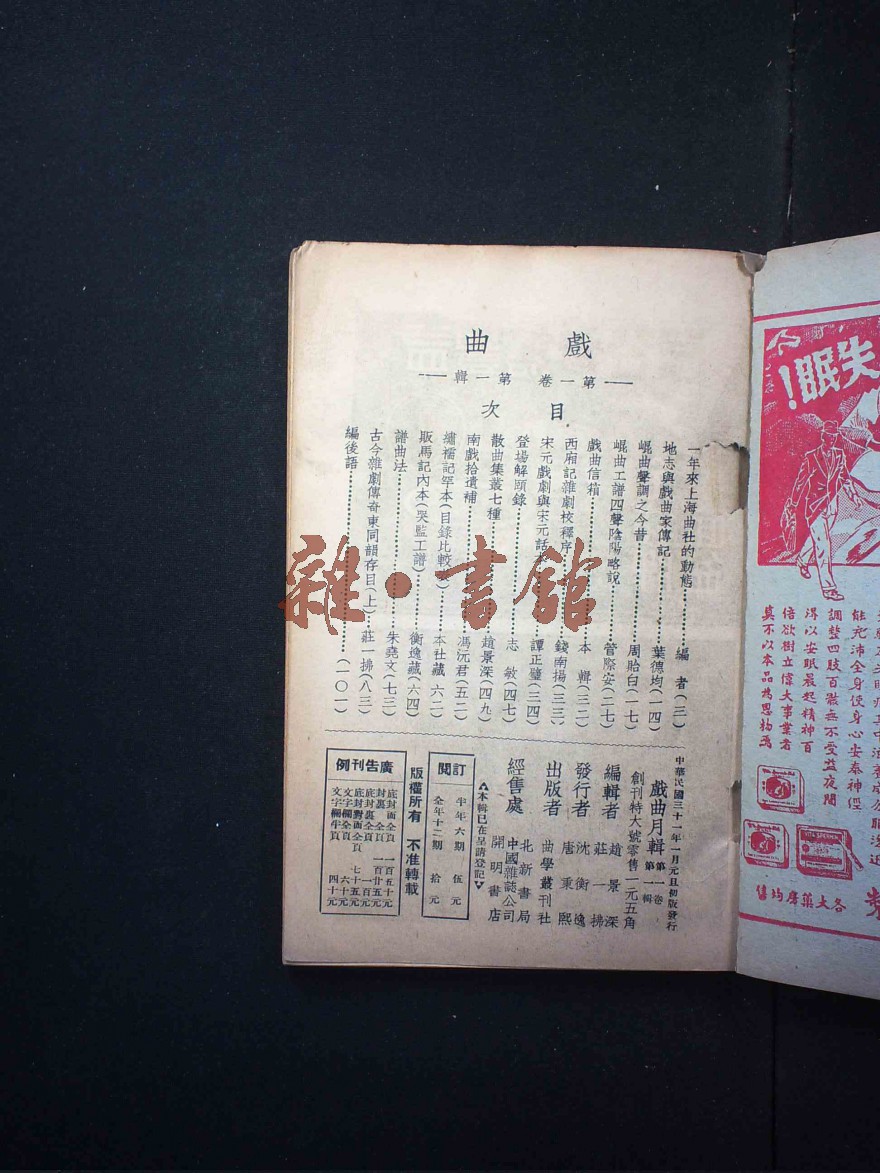 戲曲
第一卷 第一輯
目次
一年來上海曲社的動態 編者(三)
地志與戲曲家傳記 葉德均(一四)
崐曲聲調之今昔 周貽白(一七)
崐曲工譜四聲陰陽略說 管際安(二七)
戲曲信箱 本輯(三二)
西廂記雜劇校釋序 錢南揚(三三)
宋元戲劇與宋元話本 譚正璧(三四)
登場解頤錄 志敏(四七)
散曲集叢七種 趙景深(四九)
南戲拾遺補 馮沅君(五二)
繡襦記罕本(目錄比較) 本社藏(六二)
販馬記內本(哭監工譜) 衡逸藏(六四)
譜曲法 朱堯文(七三)
古今雜劇傳奇東同韻存目(上) 莊一拂(八三)
編後語 (一〇一)
中華民國三十一年一月元旦初版發行
戲曲月輯 第一卷 第一輯
創刊特大號零售一元五角
編輯者 趙景深 莊一拂
發行者 沈衡逸 唐秉熙
出版者 曲學叢刊社
經售處 北新書局 中國雜誌公司 開明書店
本輯已在呈請登記
訂閱
半年六期 伍元
全年十二期 拾元
版權所有 不准轉載
廣告刊例
底封面全頁 一百五十元
封裏全頁 一百廿五元
底封裏全頁 一百元
底封對面全頁 七十五元
文字欄全頁 六十元
文字欄半頁 四十元
雜·書館
失眠!
能充沛全身使身心安泰神經
調整四肢百骸無不受益夜間
得以安眠晨起精神百
倍欲樹立偉大事業者
莫不以本品為恩物焉
各大藥房均售